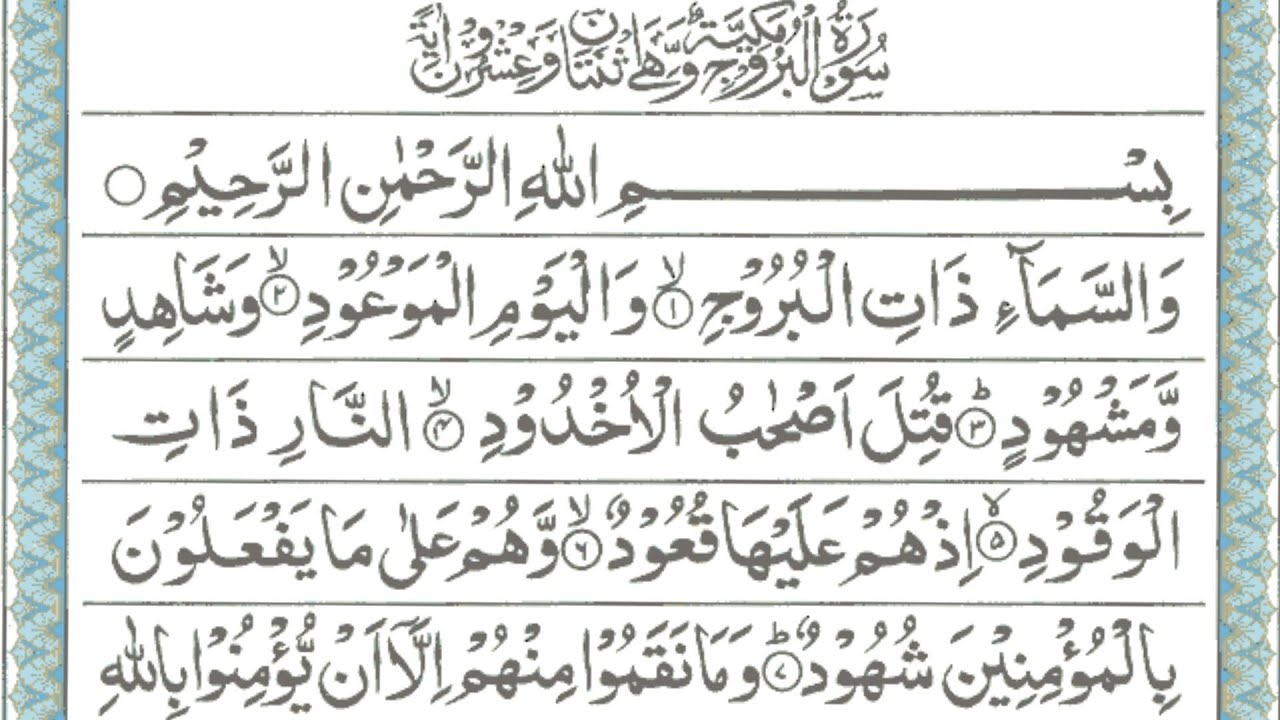 سُوْرَةُ الْبُرُوْجِ مَكِّيَّةٌ وَّهِيَ ثِنْتَانِ وَعِشْرُوْنَ اٰيَةً
بِسْمِ اللّٰهِ الرَّحْمٰنِ الرَّحِيْمِ ○
وَالسَّمَآءِ ذَاتِ الْبُرُوْجِ ۙ﴿۱﴾ وَالْيَوْمِ الْمَوْعُوْدِ ۙ﴿۲﴾ وَشَاهِدٍ
وَّمَشْهُوْدٍ ؕ﴿۳﴾ قُتِلَ اَصْحٰبُ الْاُخْدُوْدِ ۙ﴿۴﴾ النَّارِ ذَاتِ
الْوَقُوْدِ ۙ﴿۵﴾ اِذْ هُمْ عَلَيْهَا قُعُوْدٌ ۙ﴿۶﴾ وَّهُمْ عَلٰى مَا يَفْعَلُوْنَ
بِالْمُؤْمِنِيْنَ شُهُوْدٌ ؕ﴿۷﴾ وَمَا نَقَمُوْا مِنْهُمْ اِلَّاۤ اَنْ يُّؤْمِنُوْا بِاللّٰهِ